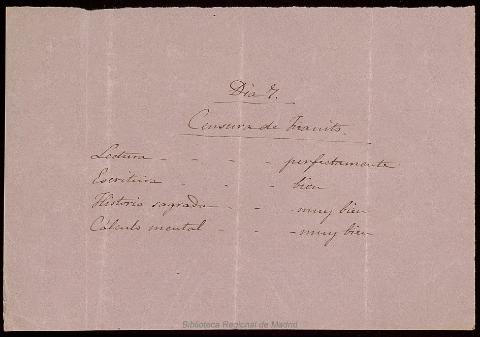 Día 7.
Censura de Franits.
Lectura - - - - perfectamente
Escritura - - - - bien
Historia sagrada - - - muy bien
Cálculo mental - - - muy bien
Biblioteca Regional de Madrid